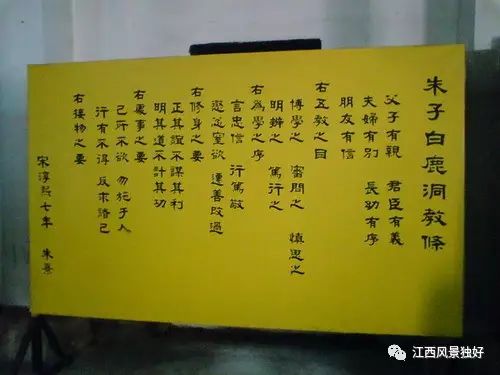 朱子白鹿洞教條
父子有親 君臣有義
夫婦有別 長幼有序
朋友有信
右五教之目
博學之 審問之 慎思之
明辨之 篤行之
右為學之序
言忠信 行篤敬
懲忿窒欲 遷善改過
右修身之要
正其誼不謀其利
明其道不計其功
右處事之要
己所不欲 勿施于人
行有不得 反求諸己
右接物之要
宋淳熙七年 朱熹
江西风景独好